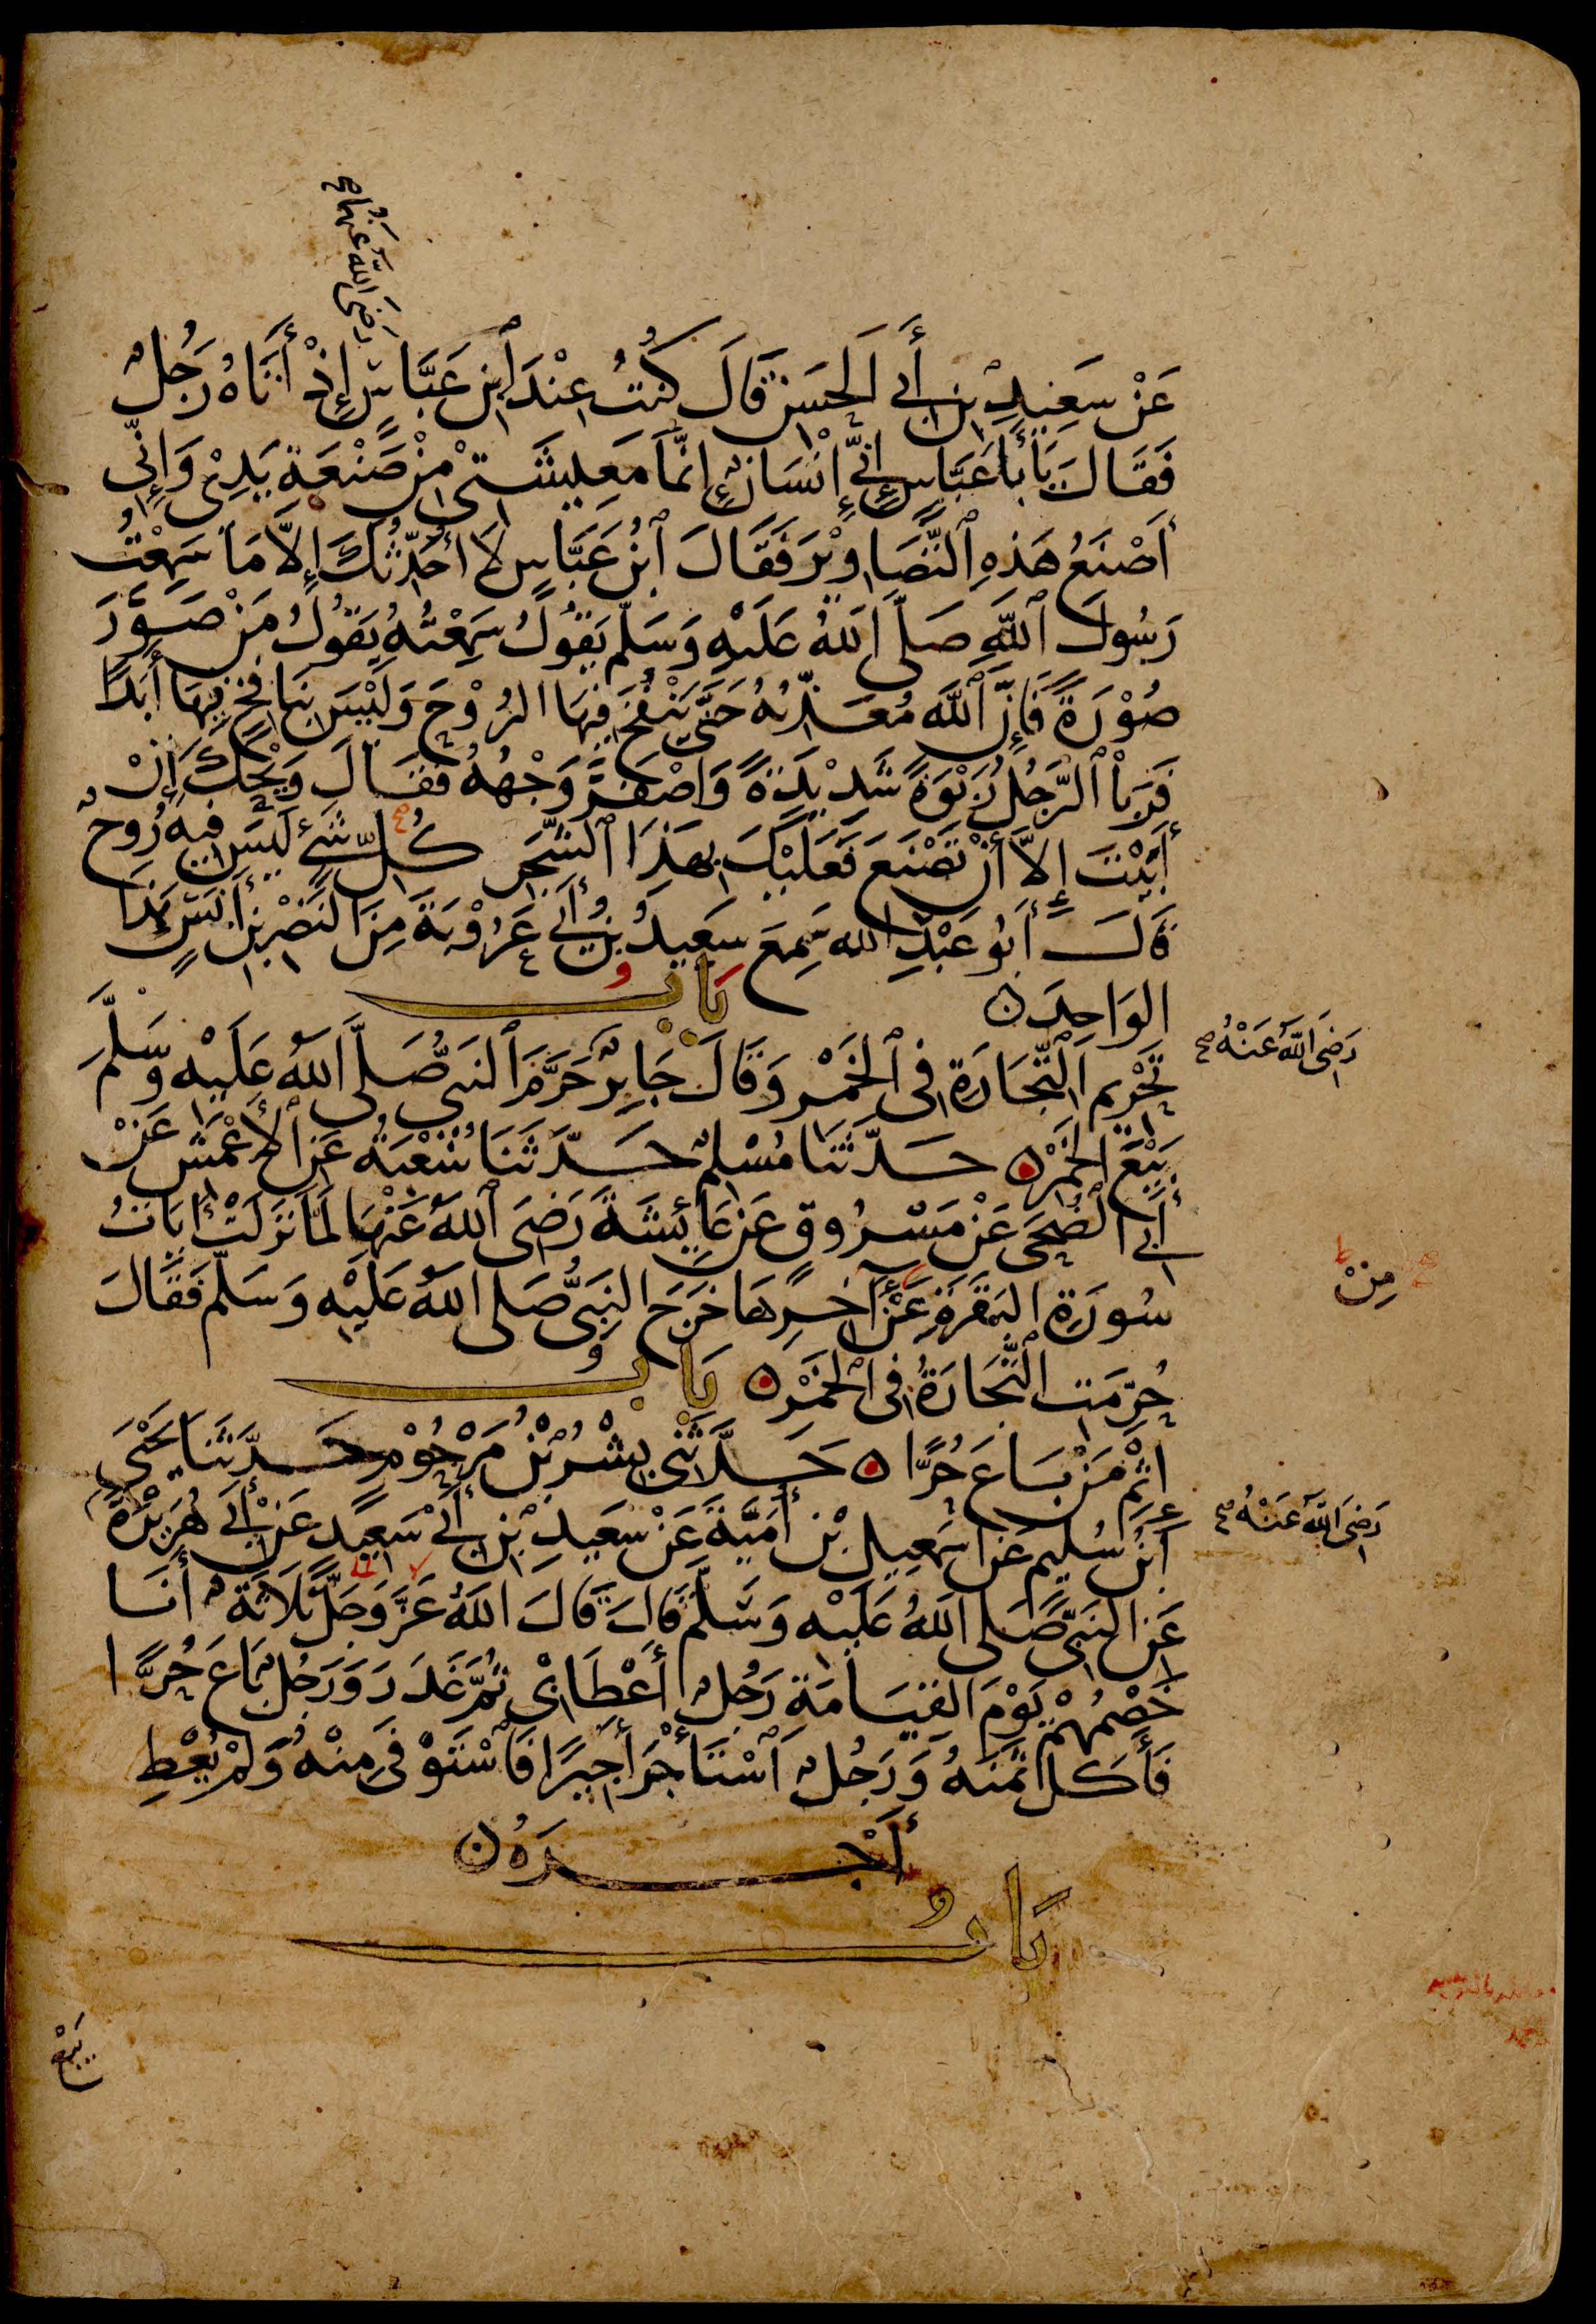 رَضِيَ اللهُ عَنْهُمَا صح
عَنْ سَعِيدِ بْنِ أَبِي الْحَسَنِ قَالَ كُنْتُ عِنْدَ ابْنِ عَبَّاسٍ إِذْ أَتَاهُ رَجُلٌ
فَقَالَ يَا أَبَا عَبَّاسٍ إِنِّي إِنْسَانٌ إِنَّمَا مَعِيشَتِي مِنْ صَنْعَةِ يَدِيْ وَإِنِّي
أَصْنَعُ هَذِهِ التَّصَاوِيْرَ فَقَالَ ابْنُ عَبَّاسٍ لَا أُحَدِّثُكَ إِلَّا مَا سَمِعْتُ
رَسُولَ اللَّهِ صَلَّى اللهُ عَلَيْهِ وَسَلَّم يَقُولُ سَمِعْتُهُ يَقُولُ مَنْ صَوَّرَ
صُوْرَةً فَإِنَّ اللَّهَ مُعَذِّبُهُ حَتَّى يَنْفُخَ فِيهَا الرُّوْحَ وَلَيْسَ بِنَافِخٍ فِيهَا أَبَدًا
فَرَبَا الرَّجُلُ رَبْوَةً شَدِيْدَةً وَاصْفَرَّ وَجْهُهُ فَقَالَ وَيْحَكَ إِنْ
أَبَيْتَ إِلَّا أَنْ تَصْنَعَ فَعَلَيْكَ بِهَذَا الشَّجَرِ كُلِّ شَيْءٍ لَيْسَ فِيهِ رُوحٌ
قَالَ أَبُو عَبْدِ الله سَمِعَ سَعِيدُ بْنُ أَبِي عَرُوْبَةَ مِنَ النَّضْرِ بْنِ أَنَسٍ هَذَا
الوَاحِدَ بَابُ
تَحْرِيمِ التِّجَارَةِ فِي الْخَمْرِ وَقَالَ جَابِرٌ حَرَّمَ النَّبِيُّ صَلَّى اللهُ عَلَيْهِ وَسَلَّمَ
رَضِيَ اللهُ عَنْهُ صح
بَيْعَ الْخَمْرِ حَدَّثَنَا مُسْلِمٌ حَدَّثَنَا شُعْبَةُ عَنِ الْأَعْمَشِ عَنْ
أَبِي الضُّحَى عَنْ مَسْرُوقٍ عَنْ عَائِشَةَ رَضِيَ اللهُ عَنْهَا لَمَّا نَزَلَتْ آيَاتُ
سُورَةِ الْبَقَرَةِ عَنْ آخِرِهَا خَرَجَ النَّبِيُّ صَلى اللهُ عَلَيْهِ وَسَلَّم فَقَالَ
مِنْ
حُرِّمَتِ التِّجَارَةُ فِي الْخَمْرِ بَابُ
إِثْمِ مَنْ بَاعَ حُرًّا حَدَّثَنِي بِشْرُ بْنُ مَرْحُوْمٍ حَدَّثَنَا يَحْيَى
ابْنُ سُلَيْمٍ عَنْ إِسْمَعِيلَ بْنِ أُمَيَّةَ عَنْ سَعِيدِ بْنِ أَبِي سَعِيدٍ عَنْ أَبِي هُرَيْرَةَ
رَضِيَ اللهُ عَنْهُ صح
عَنِ النَّبِيِّ صَلى اللهُ عَلَيْهِ وَسَلَّمَ قَالَ قَالَ اللهُ عَزَّ وَجَلَّ ثَلَاثَةٌ أَنَا
خَصْمُهُمْ يَوْمَ القِيَامَةِ رَجُلٌ أَعْطَى بِيْ ثُمَّ غَدَرَ وَرَجُلٌ بَاعَ حُرًّا
فَأَكَلَ ثَمَنَهُ وَرَجُلٌ اسْتَأْجَرَ أَجِيرًا فَاسْتَوْفَى مِنْهُ وَلَمْ يُعْطِ
أَجْرَهُ
بَابُ
بَيْعِ